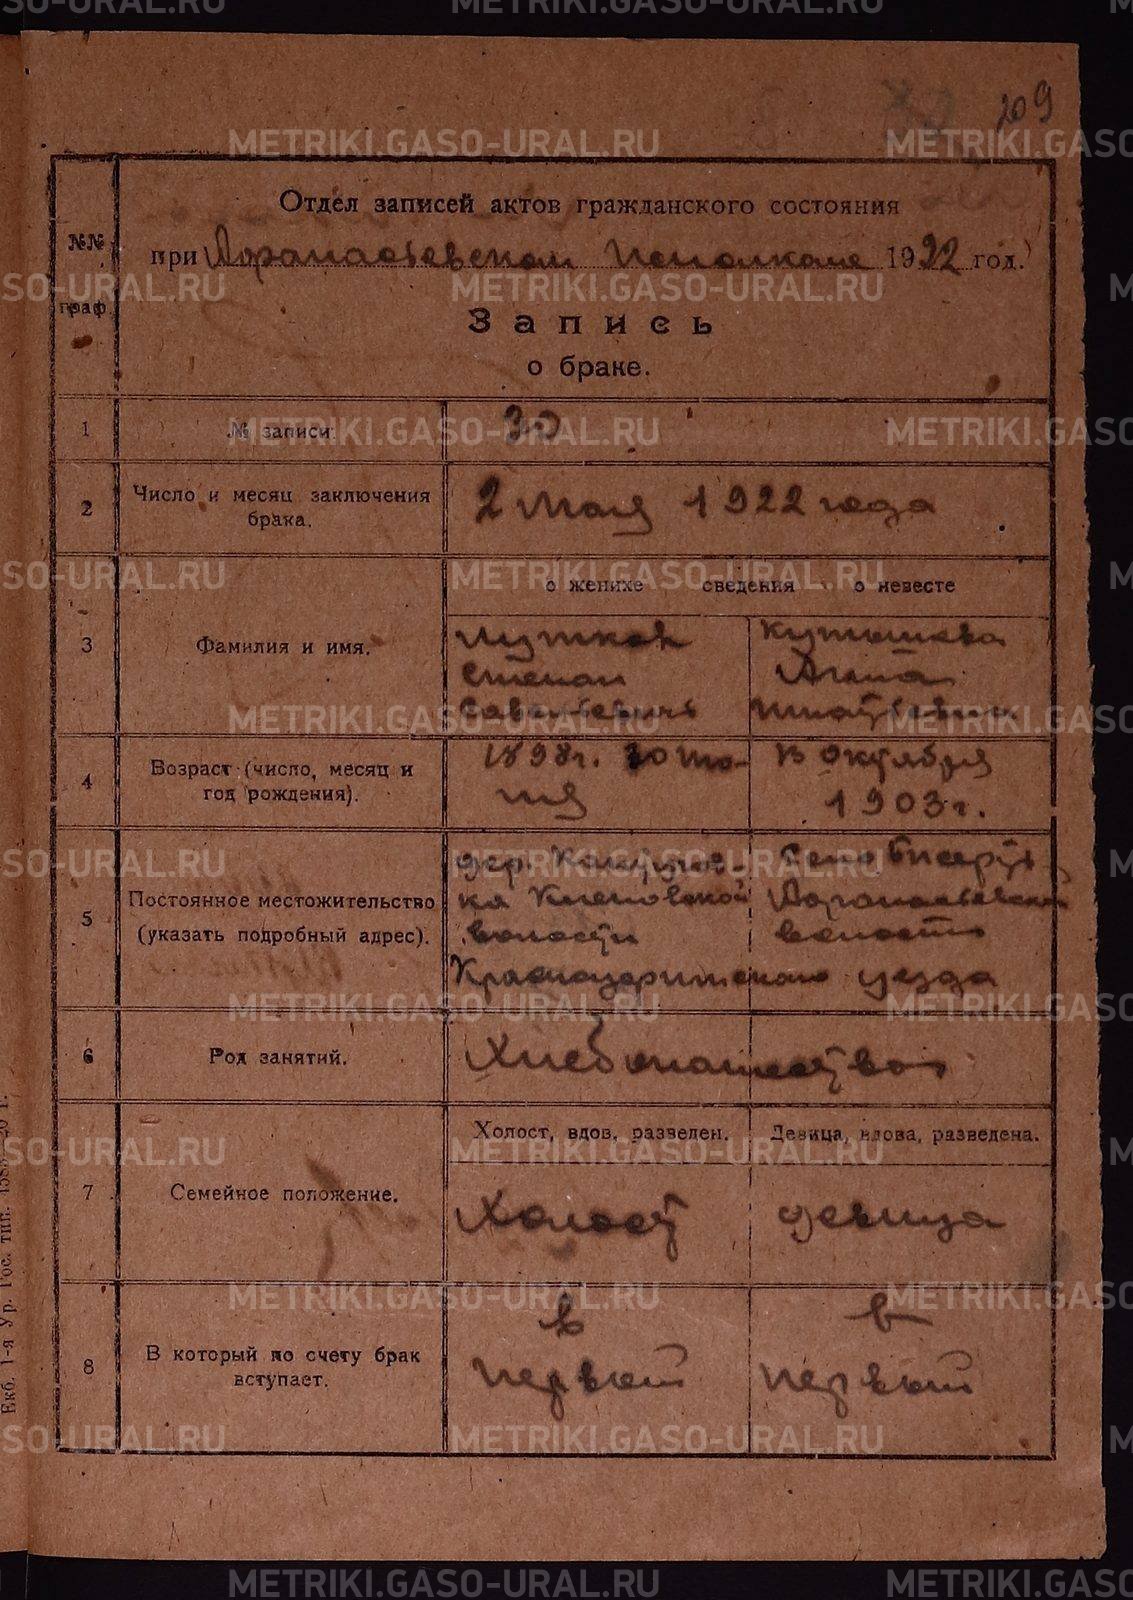 209
Отдел записей актов гражданского состояния
№№ граф.
при Афанасьевском Исполкоме 1922 год.
Запись
о браке.
1 № записи. 30
2 Число и месяц заключения брака. 2 Мая 1922 года
о женихе сведения о невесте
3 Фамилия и имя.
Степан Анна
Савельевичъ Игнатьевна
4 Возраст (число, месяц и год рождения).
1898 г. 30 В Октября
1903 г.
5 Постоянное местожительство (указать подробный адрес).
дер. Село Бисерть
Афанасьевской
волости волости
Красноуфимского уезда
6 Род занятий. Хлебопашество
Холост, вдов, разведен. Девица, вдова, разведена.
7 Семейное положение. Холост девица
8 В который по счету брак вступает.
в в
первый первый
Екб. 1-я Ур. Гос. тип.
METRIKI.GASO-URAL.RU